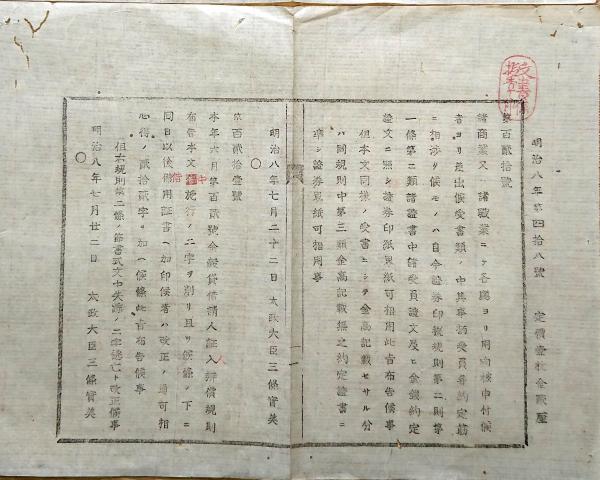 明治八年第四拾八號 定價壹枚金貳厘
第百貳拾號
諸商業又ハ諸職業ニテ各廳ヨリ用向被申付候
者ヨリ差出候受書類ノ中其事柄受負等約定筋
ニ相渉リ候モノハ自今證券印税規則第二則第
一條第二類諸證書中諸受負證文及ヒ金錢約定
證文ニ照シ證券印紙界紙可相用此旨布告候事
但本文同樣ノ受書ニシテ金高記載セサル分
ハ同規則中第三類金高記載無之約定證書ニ
準シ證券界紙可相用事
明治八年七月二十二日 太政大臣三條實美
第百貳拾壹號
本年六月第百貳號金穀貸借請人證人辨償規則
布告本文施行ノ二字ヲ削リ且リ候條ノ下ニ
同日以後借用証書ヘ加印候者ハ改正ノ通可相
心得ノ貳拾貳字ヲ加ヘ候條此旨布告候事
但本規則第二條ノ節書式文中失踪ノ二字逃亡ト改正候事
明治八年七月廿二日 太政大臣三條實美